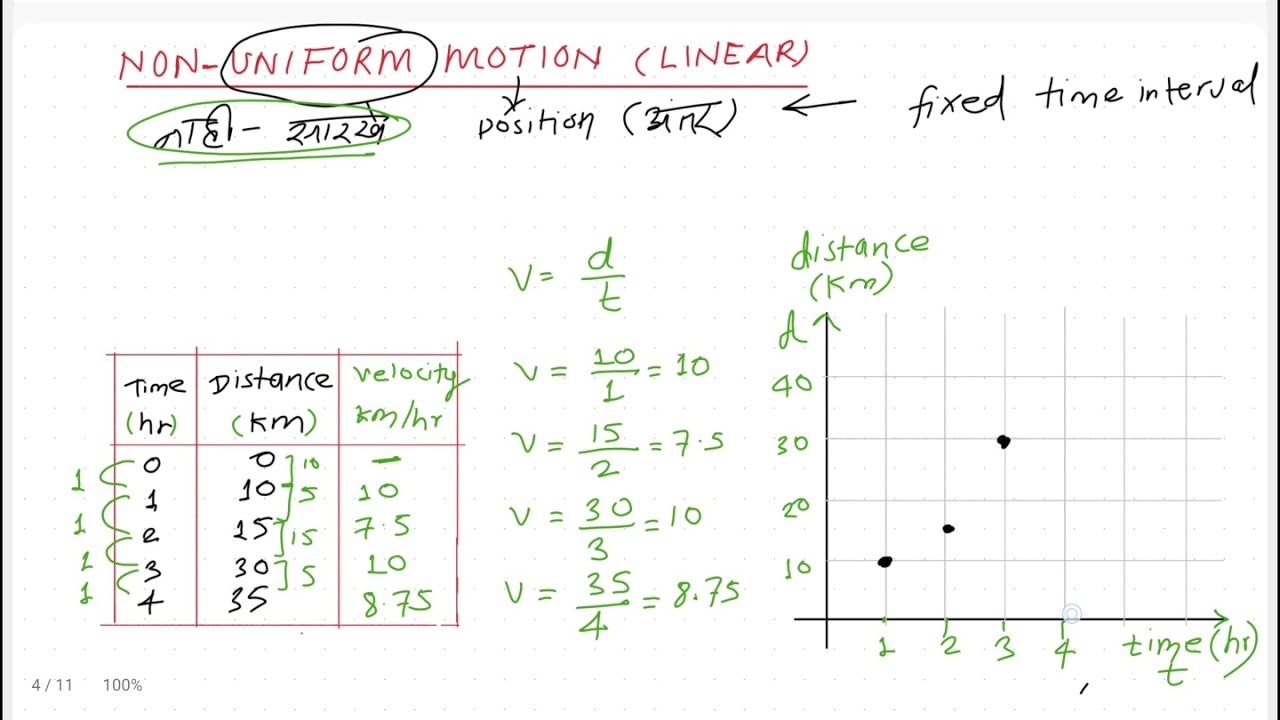 NON-UNIFORM MOTION (LINEAR)
नाही - सारखे position (अंतर) ← fixed time interval
V = d/t
distance
(Km)
d
Time Distance velocity
(hr) (Km) km/hr
0 0 —
1 10 10
2 15 7.5
3 30 10
4 35 8.75
1
1
1
1
10
5
15
5
V = 10/1 = 10
V = 15/2 = 7.5
V = 30/3 = 10
V = 35/4 = 8.75
40
30
20
10
1 2 3 4 time (hr)
t
4 / 11 100%